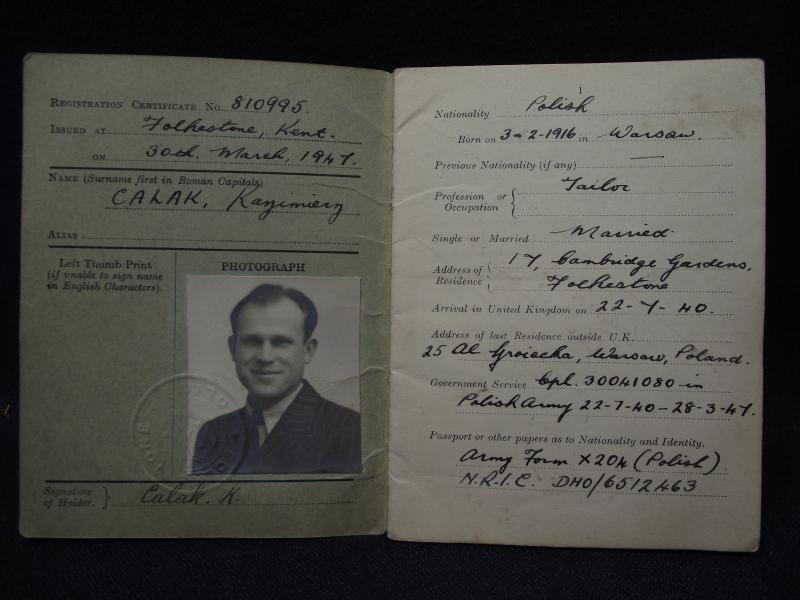 REGISTRATION CERTIFICATE No. 810995
ISSUED AT Folkestone, Kent.
ON 30th. March, 1947.
NAME (Surname first in Roman Capitals)
CALAK, Kazimierz
ALIAS
Left Thumb Print
(if unable to sign name
in English Characters).
PHOTOGRAPH
Signature
of Holder. } Calak. K.
1
Nationality Polish
Born on 3-2-1916 in Warsaw.
Previous Nationality (if any) —
Profession or
Occupation { Tailor
Single or Married Married
Address of
Residence { 17, Cambridge Gardens,
Folkestone
Arrival in United Kingdom on 22-7-40.
Address of last Residence outside U.K.
25 Al Groiecka, Warsaw, Poland.
Government Service Cpl. 30041080 in
Polish Army 22-7-40-28-3-47.
Passport or other papers as to Nationality and Identity.
Army Form X20A (Polish)
N.R.I.C. DHO/6512463